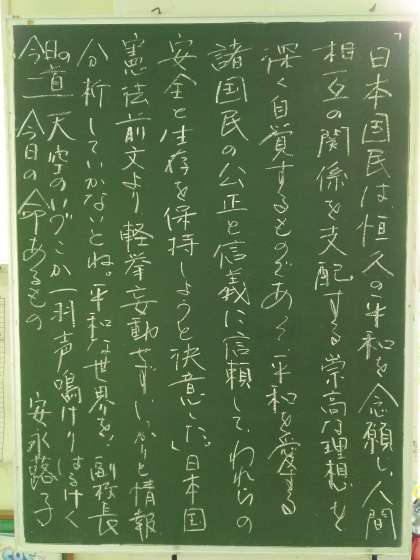 「日本国民は、恒久の平和を念願し、人間
相互の関係を支配する崇高な理想を
深く自覚するものであって、平和を愛する
諸国民の公正と信義に信頼して、われらの
安全と生存を保持しようと決意した。」日本国
憲法前文より 軽挙妄動せずしっかりと情報
分析していかないとね。平和な世界を、副校長
今日の一首 天空のいづこか一羽声鳴けりはるけく
今日の命あるもの 安永蕗子